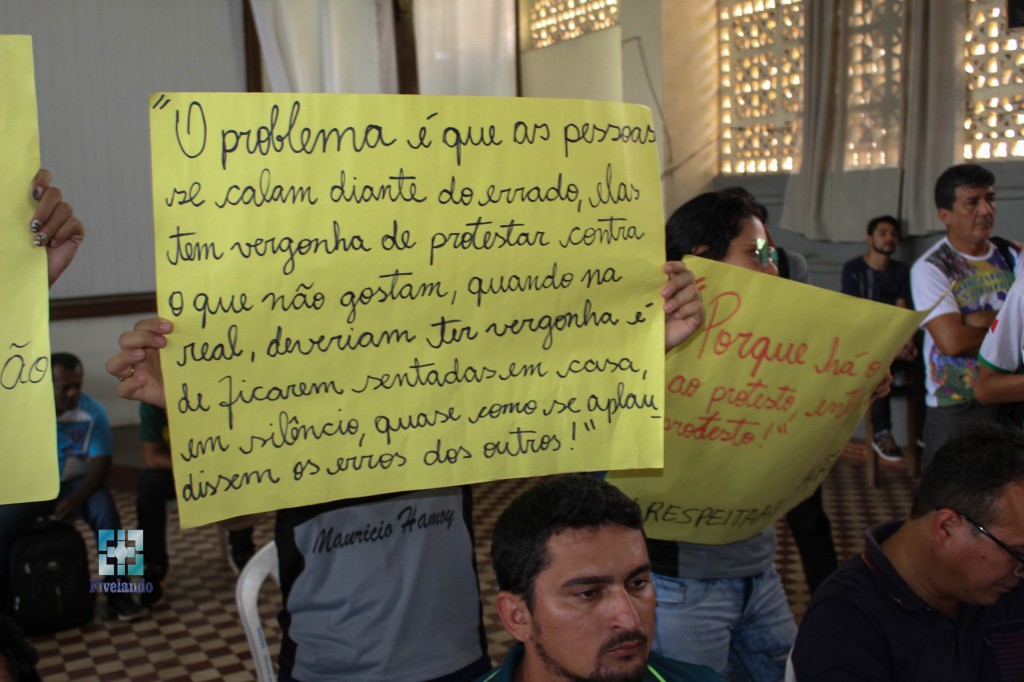 "O problema é que as pessoas
se calam diante do errado, elas
tem vergonha de protestar contra
o que não gostam, quando na
real, deveriam ter vergonha é
de ficarem sentadas em casa,
em silêncio, quase como se aplau_
dissem os erros dos outros!"
ão
"Porque há o
ao protesto,
protesto!"
RESPEITA
Maurício Hamoy
Fivelando